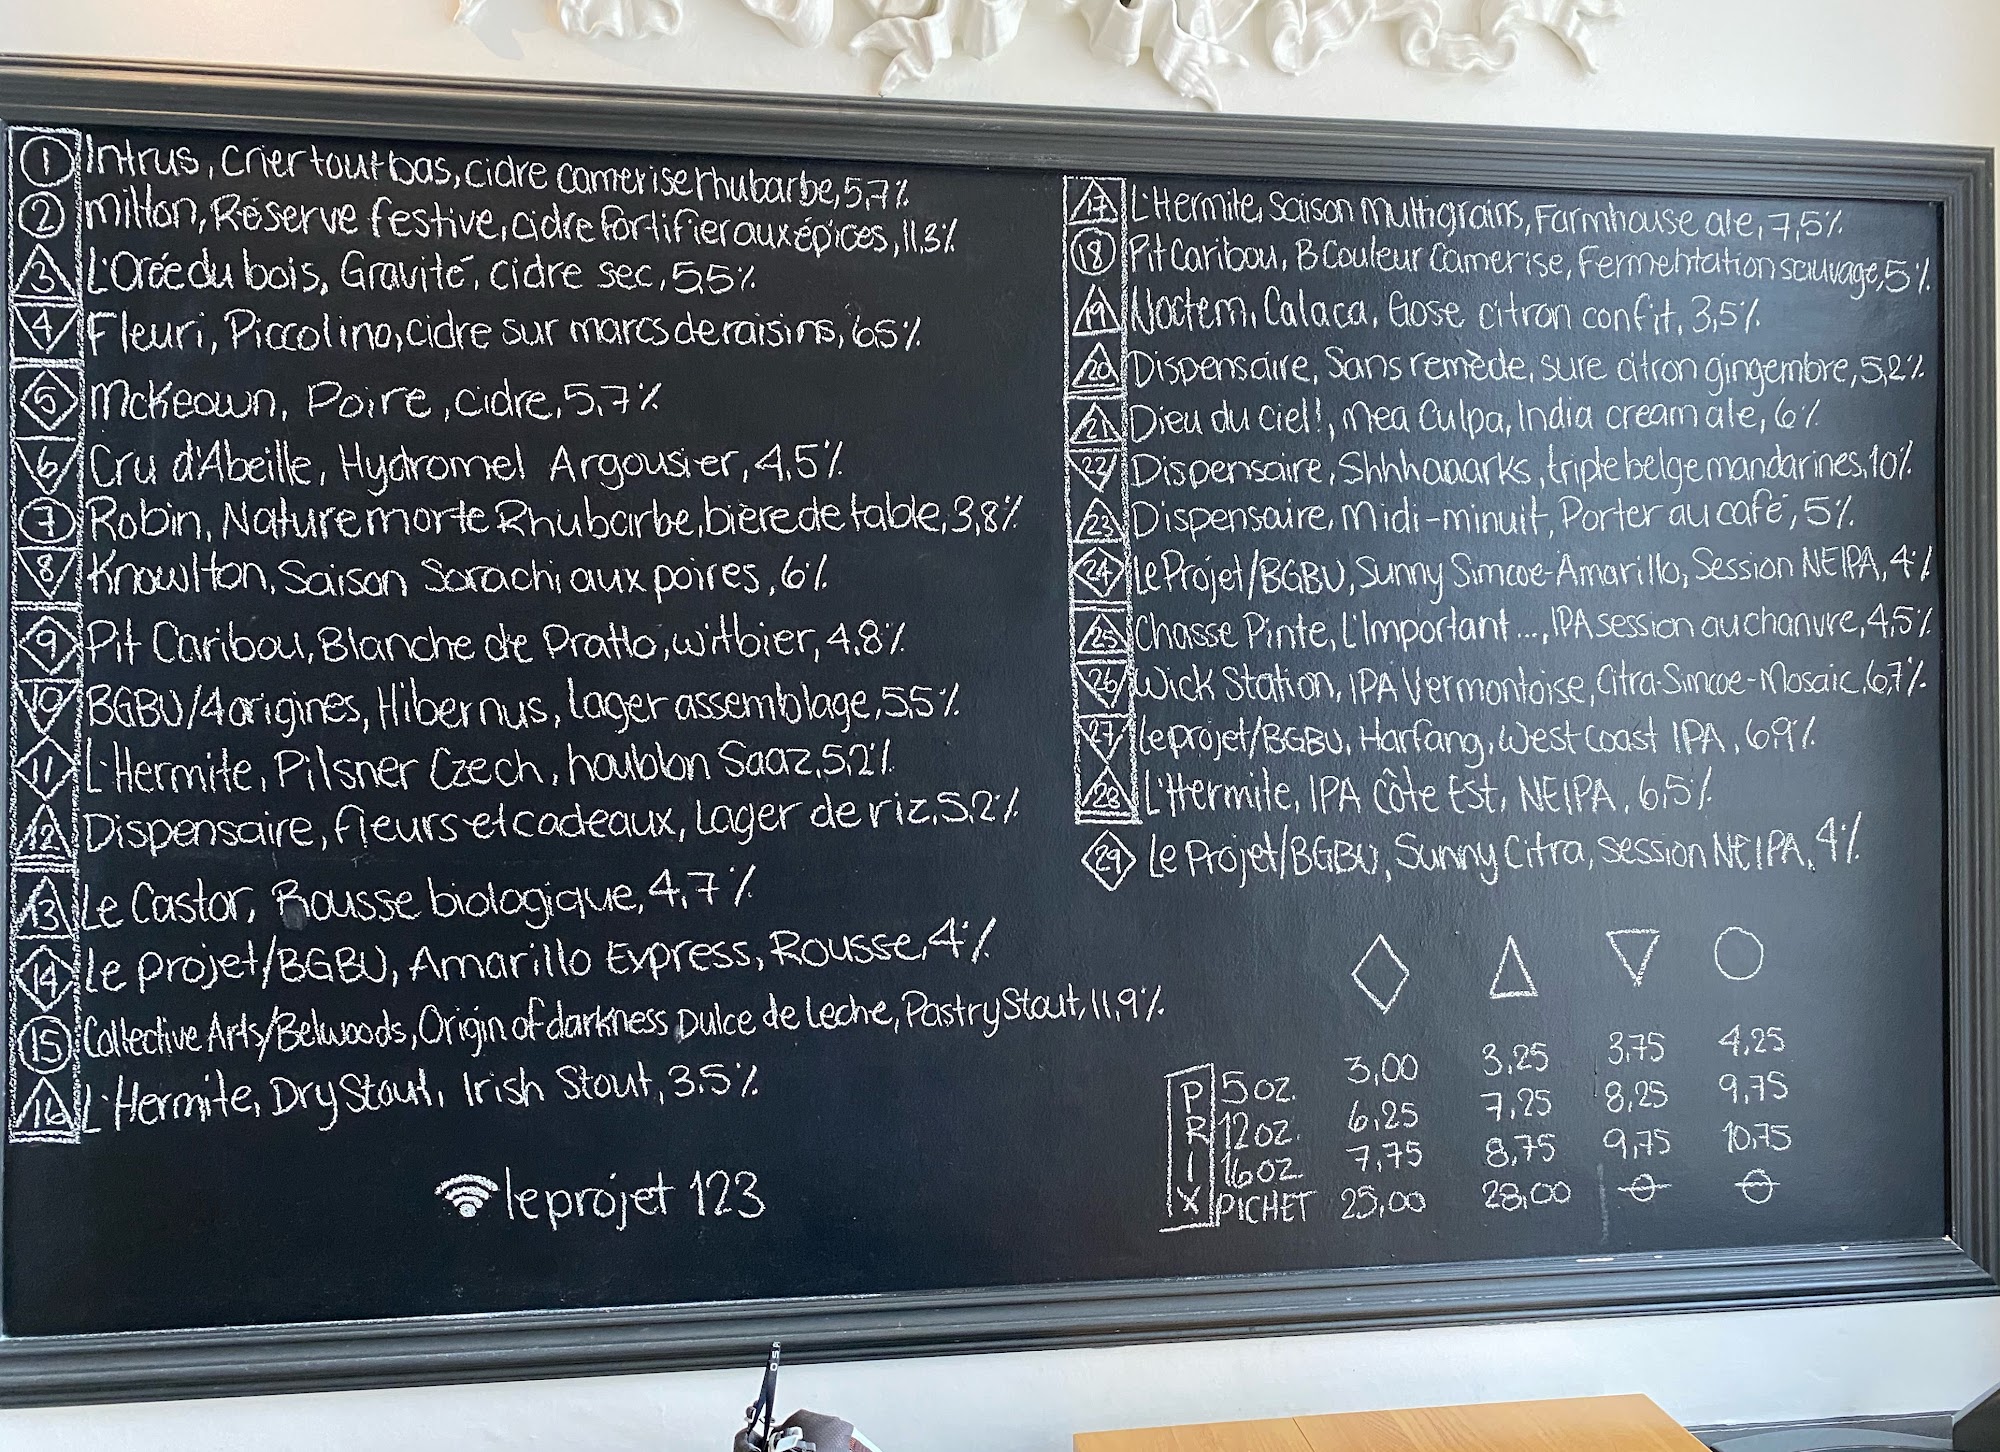 1 Intrus, Crier tout bas, cidre camerise rhubarbe, 5,7%
2 Milton, Réserve festive, cidre fortifier aux épices, 11,3%
3 L'Orée du bois, Gravité, cidre sec, 5,5%
4 Fleuri, Piccolino, cidre sur marcs de raisins, 6,5%
5 McKeown, Poire, cidre, 5,7%
6 Cru d'Abeille, Hydromel Argousier, 4,5%
7 Robin, Nature morte Rhubarbe, bière de table, 3,8%
8 Knowlton, Saison Sorachi aux poires, 6%
9 Pit Caribou, Blanche de Pratto, witbier, 4,8%
10 BGBU/4 origines, Hibernus, Lager assemblage, 5,5%
11 L'Hermite, Pilsner Czech, houblon Saaz, 5,2%
12 Dispensaire, fleurs et cadeaux, Lager de riz, 5,2%
13 Le Castor, Rousse biologique, 4,7%
14 Le projet/BGBU, Amarillo Express, Rousse, 4%
15 Collective Arts/Belwoods, Origin of darkness Dulce de Leche, Pastry Stout, 11,9%
16 L'Hermite, Dry Stout, Irish Stout, 3.5%
leprojet 123
17 L'Hermite, Saison multigrains, Farmhouse ale, 7,5%
18 Pit Caribou, B Couleur Camerise, Fermentation sauvage, 5%
19 Noctem, Calaca, Gose citron confit, 3,5%
20 Dispensaire, Sans remède, sure citron gingembre, 5,2%
21 Dieu du ciel!, Mea Culpa, India cream ale, 6%
22 Dispensaire, Shhhaaarks, triple belge mandarines, 10%
23 Dispensaire, Midi-minuit, Porter au café, 5%
24 Le Projet/BGBU, Sunny Simcoe-Amarillo, Session NEIPA, 4%
25 Chasse Pinte, L'Important..., IPA session au chanvre, 4,5%
26 Wick Station, IPA Vermontoise, Citra-Simcoe-Mosaic, 6,7%
27 Le projet/BGBU, Harfang, West Coast IPA, 6,9%
28 L'Hermite, IPA Côte Est, NEIPA, 6,5%
29 Le Projet/BGBU, Sunny Citra, session NEIPA, 4%
PRIX
5 oz. 3,00 3,25 3,75 4,25
12 oz. 6,25 7,25 8,25 9,75
16 oz 7,75 8,75 9,75 10,75
PICHET 25,00 28,00